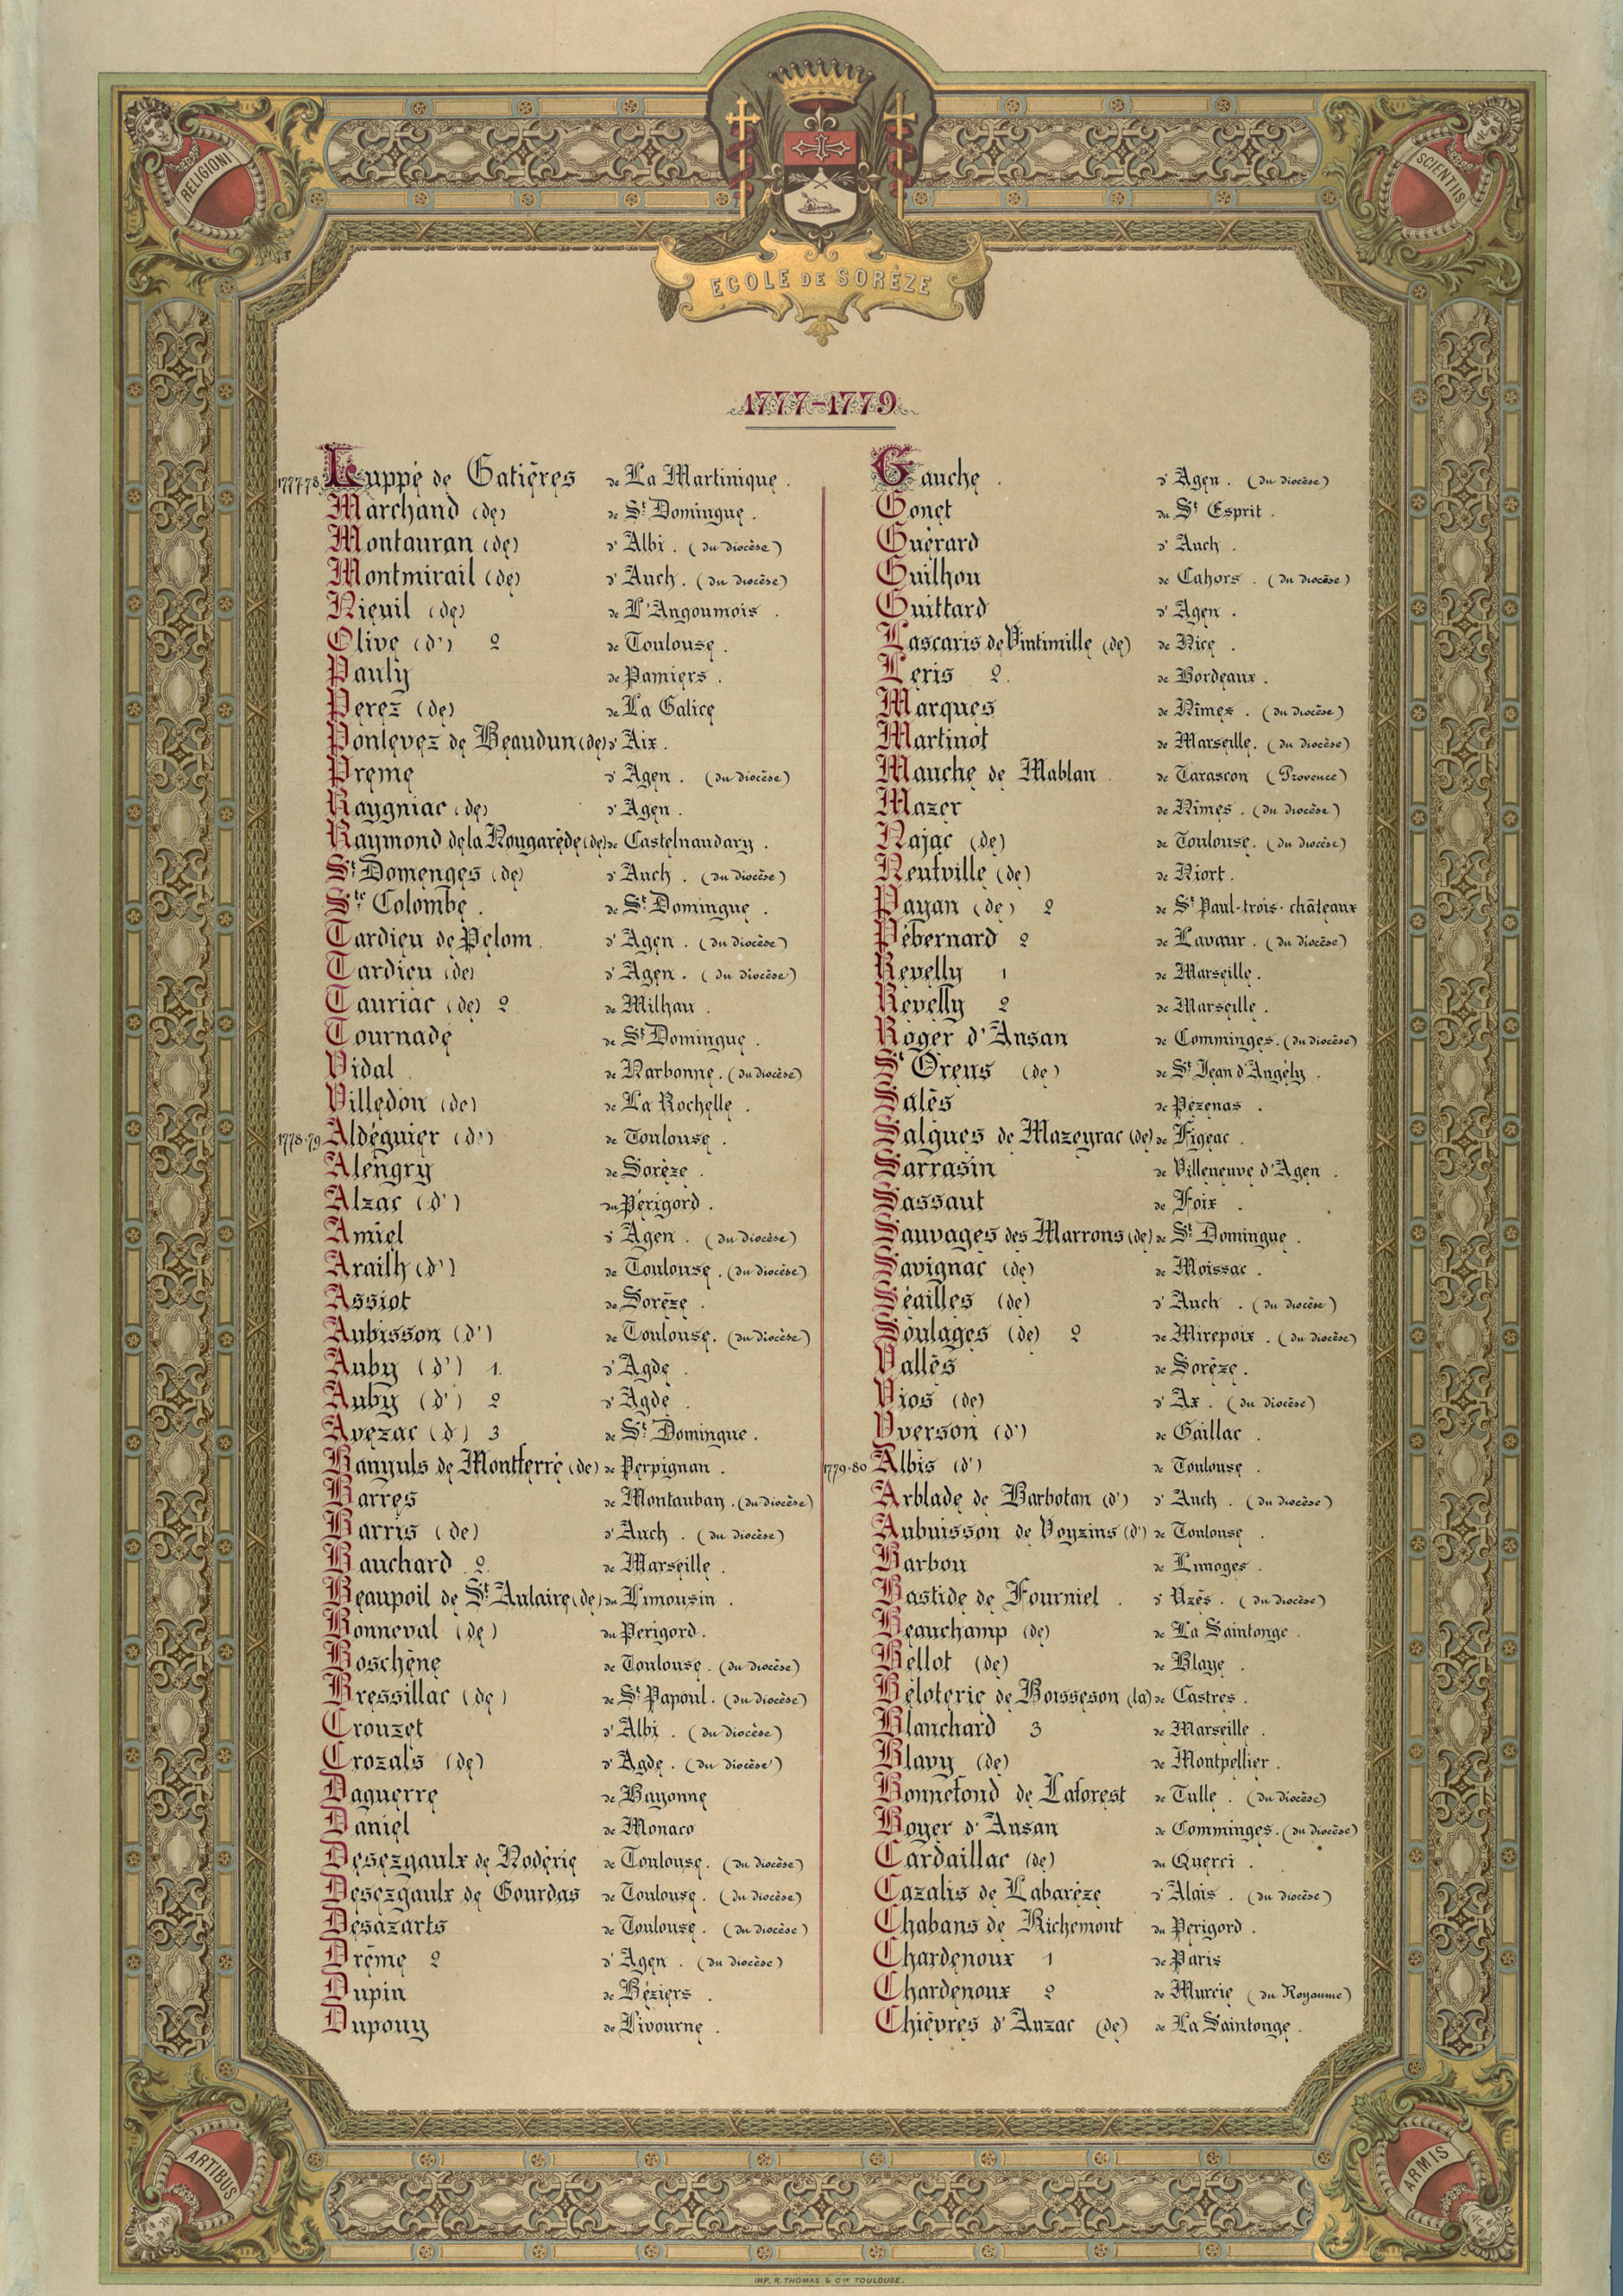 RELIGIONI
SCIENTIIS
ECOLE DE SORÈZE
1777-1779
1777-78 Luppé de Gatières de La Martinique.
Marchand (de) de St Domingue.
Montauran (de) d'Albi. (du diocèse)
Montmirail (de) d'Auch. (du diocèse)
Nieuil (de) de L'Angoumois.
Olive (d') 2 de Toulouse.
Pauly de Pamiers.
Perez (de) de La Galice
Pontevez de Beaudun (de) d'Aix.
Preme d'Agen. (du diocèse)
Raygniac (de) d'Agen.
Raymond de la Nougarède (de) de Castelnaudary.
St Domenges (de) d'Auch. (du diocèse)
Ste Colombe. de St Domingue.
Tardieu de Pelom d'Agen. (du diocèse)
Tardieu (de) d'Agen. (du diocèse)
Tauriac (de) 2 de Milhau.
Tournade de St Domingue.
Vidal de Narbonne. (du diocèse)
Villedon (de) de La Rochelle.
1778-79 Aldéguier (d') de Toulouse.
Alengry de Sorèze.
Alzac (d') du Périgord.
Amiel d'Agen. (du diocèse)
Arailh (d') de Toulouse. (du diocèse)
Assiot de Sorèze.
Aubisson (d') de Toulouse. (du diocèse)
Auby (d') 1. d'Agde.
Auby (d') 2 d'Agde.
Avezac (d') 3 de St Domingue.
Banyuls de Montferré (de) de Perpignan.
Barres de Montauban. (du diocèse)
Barris (de) d'Auch. (du diocèse)
Bauchard 2. de Marseille.
Beaupoil de St Aulaire (de) du Limousin.
Bonneval (de) du Perigord.
Boschène de Toulouse. (du diocèse)
Bressillac (de) de St Papoul. (du diocèse)
Crouzet d'Albi. (du diocèse)
Crozals (de) d'Agde. (du diocèse)
Daguerre de Bayonne
Daniel de Monaco
Desezgaulx de Noderie de Toulouse. (du diocèse)
Desezgaulx de Gourdas de Toulouse. (du diocèse)
Desazarts de Toulouse. (du diocèse)
Drême 2 d'Agen. (du diocèse)
Dupin de Béziers.
Dupouy de Livourne.
Gauche. d'Agen. (du diocèse)
Gonet du St Esprit.
Guérard d'Auch.
Guilhou de Cahors. (du diocèse)
Guittard d'Agen.
Lascaris de Vintimille (de) de Nice.
Leris 2. de Bordeaux.
Marques de Nîmes. (du diocèse)
Martinot de Marseille. (du diocèse)
Mauche de Mablan de Tarascon (Provence)
Mazer de Nîmes. (du diocèse)
Najac (de) de Toulouse. (du diocèse)
Neufville (de) de Niort.
Payan (de) 2 de St Paul-trois-châteaux
Pébernard 2 de Lavaur. (du diocèse)
Revelly 1 de Marseille.
Revelly 2 de Marseille.
Roger d'Ausan de Comminges. (du diocèse)
St Orens (de) de St Jean d'Angély.
Salès de Pézenas.
Salgues de Mazeyrac (de) de Figeac.
Sarrasin de Villeneuve d'Agen.
Sassaut de Foix.
Sauvages des Marrons (de) de St Domingue.
Savignac (de) de Moissac.
Séailles (de) d'Auch. (du diocèse)
Soulages (de) 2 de Mirepoix. (du diocèse)
Vallès de Sorèze.
Vios (de) d'Ax. (du diocèse)
Yverson (d') de Gaillac.
1779-80 Albis (d') de Toulouse.
Arblade de Barbotan (d') d'Auch. (du diocèse)
Aubuisson de Voyzins (d') de Toulouse.
Barbou de Limoges.
Bastide de Fourniel. d'Uzès. (du diocèse)
Beauchamp (de) de La Saintonge.
Bellot (de) de Blaye.
Béloterie de Boisseson (la) de Castres.
Blanchard 3 de Marseille.
Blavy (de) de Montpellier.
Bonnefond de Laforest de Tulle. (du diocèse)
Boyer d'Ausan de Comminges. (du diocèse)
Cardaillac (de) du Querci.
Cazalis de Labarèze d'Alais. (du diocèse)
Chabans de Richemont du Perigord.
Chardenoux 1 de Paris
Chardenoux 2 de Murcie (du Royaume)
Chièvres d'Auzac (de) de La Saintonge.
ARTIBUS
ARMIS
IMP. R. THOMAS & Cie TOULOUSE.